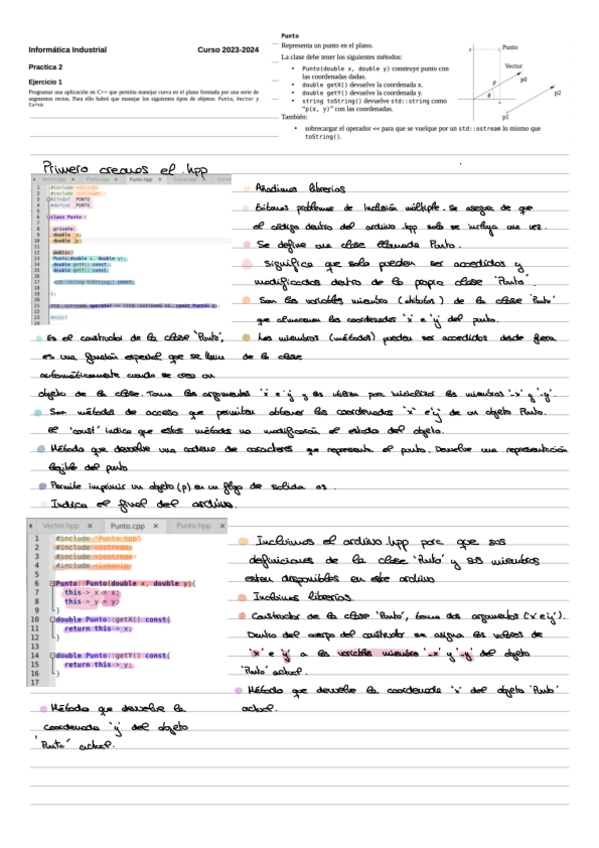 Informática Industrial Curso 2023-2024
Practica 2
Ejercicio 1
Programar una aplicación en C++ que permita manejar curva en el plano formada por una serie de
segmentos rectos. Para ello habrá que manejar los siguientes tipos de objetos: Punto, Vector y
Curva
Punto
Representa un punto en el plano.
La clase debe tener los siguientes métodos:
• Punto(double x, double y) construye punto con
las coordenadas dadas.
• double getX() devuelve la coordenada x.
• double getY() devuelve la coordenada y.
• string toString() devuelve std::string como
"p(x, y)" con las coordenadas.
También:
• sobrecargar el operador << para que se vuelque por un std::ostream lo mismo que
toString().
Punto
Vector
p0
p2
p1
Primero creamos el .hpp
Punto.hpp
1 #include <string>
2 #include <iostream>
3 #ifndef _PUNTO_
4 #define _PUNTO_
5
6 class Punto {
7
8 private:
9 double _x;
10 double _y;
11
12 public:
13 Punto(double x, double y);
14 double getX() const;
15 double getY() const;
16
17 std::string toString() const;
18
19 };
20
21 std::ostream& operator << (std::ostream& os, const Punto& p);
22
23 #endif
24
Añadimos librerias
Evitamos problemas de inclusión múltiple. Se asegura de que
el código dentro del archivo .hpp solo se incluya una vez.
Se define una clase llamada Punto.
Significa que solo pueden ser accedidos y
modificados dentro de la propia clase 'Punto'.
Son las variables miembro (atributos) de la clase 'Punto'
que almacenan las coordenadas 'x' e 'y' del punto.
Es el constructor de la clase 'Punto',
es una función especial que se llama
automáticamente cuando se crea un
Los miembros (métodos) pueden ser accedidos desde fuera
de la clase
objeto de la clase. Toma los argumentos 'x' e 'y' y los utiliza para inicializar los miembros '_x' y '_y'.
Son métodos de acceso que permiten obtener las coordenadas 'x' e 'y' de un objeto Punto.
El 'const' indica que estos métodos no modificarán el estado del objeto.
Método que devuelve una cadena de caracteres que representa el punto. Devuelve una representación
legible del punto
Permite imprimir un objeto (p) en un flujo de salida os.
Indica el final del archivo.
Vector.hpp × Punto.cpp × Punto.hpp ×
1 #include "Punto.hpp"
2 #include <iostream>
3 #include <sstream>
4 #include <iomanip>
5
6 Punto::Punto(double x, double y){
7 this->_x = x;
8 this->_y = y;
9 }
10 double Punto::getX() const{
11 return this->_x;
12 }
13
14 double Punto::getY() const{
15 return this->_y;
16 }
17
Incluimos el archivo .hpp para que sus
definiciones de la clase 'Punto' y sus miembros
esten disponibles en este archivo
Incluimos librerias
Constructor de la clase 'Punto', toma dos argumentos ('x' e 'y').
Dentro del cuerpo del constructor se asigna los valores de
'x' e 'y' a las variables miembro '_x' y '_y' del objeto
'Punto' actual.
Método que devuelve la coordenada 'x' del objeto 'Punto'
actual.
Método que devuelve la
coordenada 'y' del objeto
'Punto' actual.